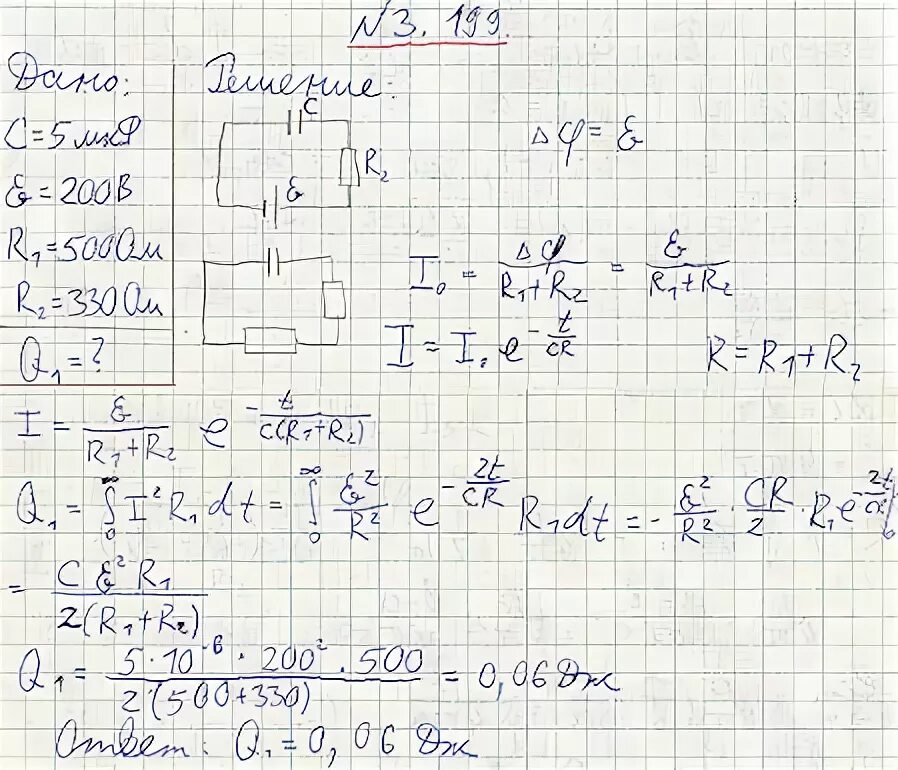 №3.199.
Дано:
C=5мкФ
ℰ=200В
R₁=500Ом
R₂=330Ом
Q₁=?
Решение:
C
R₂
ℰ
Δφ=ℰ
I₀ = Δφ/(R₁+R₂) = ℰ/(R₁+R₂)
I = I₀ e^(-t/CR) R=R₁+R₂
I = ℰ/(R₁+R₂) e^(-t/C(R₁+R₂))
Q₁ = ∫₀^∞ I² R₁ dt = ∫₀^∞ ℰ²/R² e^(-2t/CR) R₁dt = - ℰ²/R² · CR/2 · R₁e^(-2t/CR)|₀
= Cℰ²R₁/2(R₁+R₂)
Q₁ = 5·10⁻⁶·200²·500/2(500+330) = 0,06 Дж
Ответ: Q₁=0,06 Дж